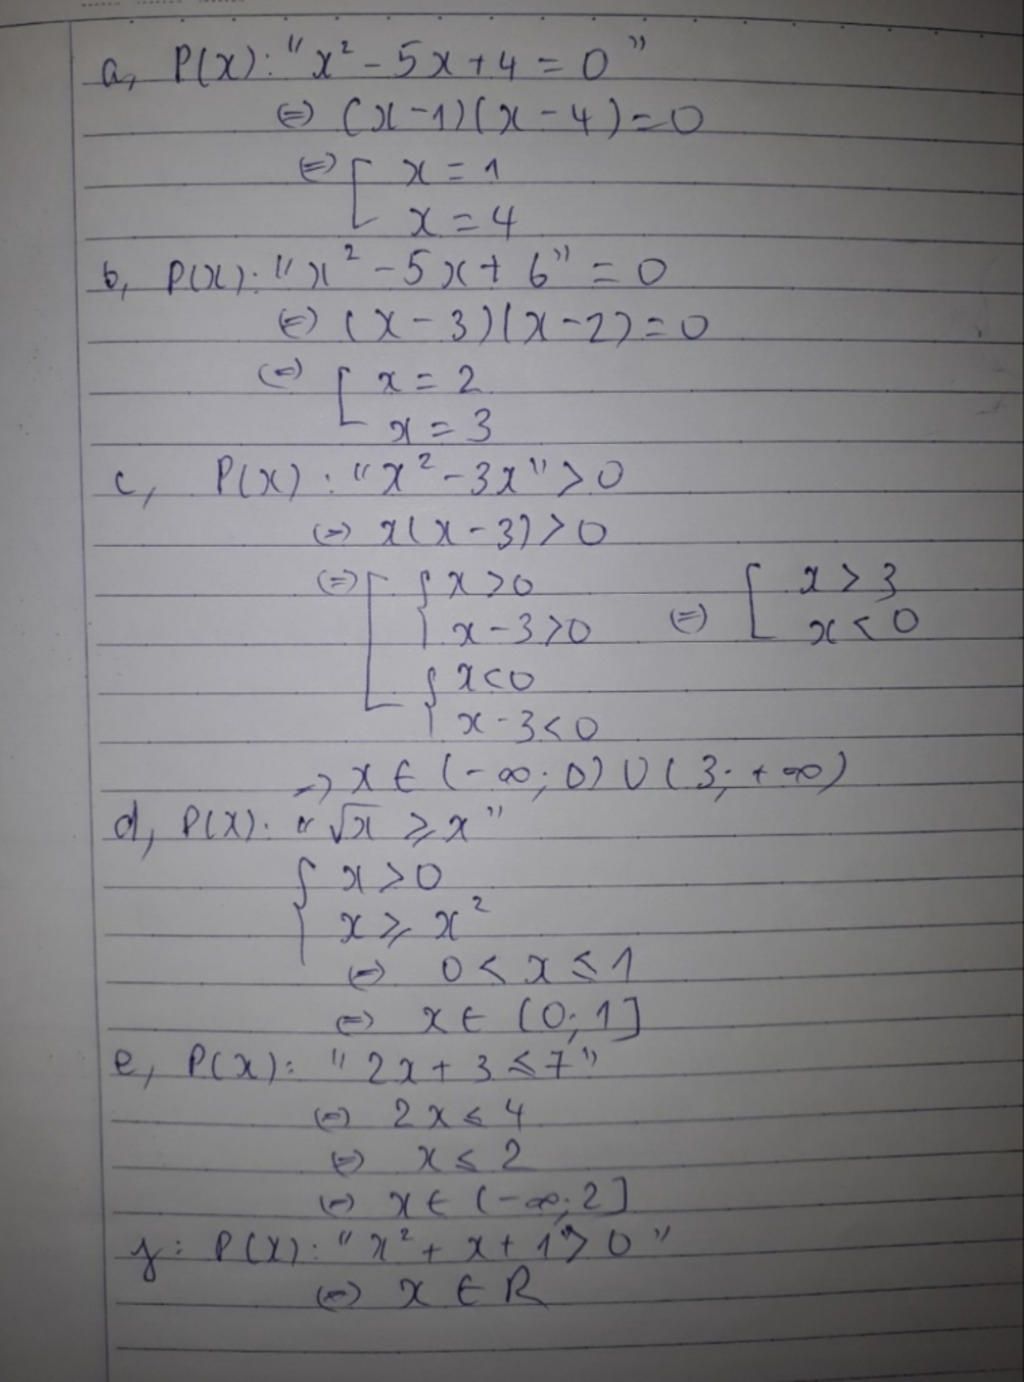 a, P(x): "x² - 5x + 4 = 0"
(=) (x - 1)(x - 4) = 0
(=) [ x = 1
x = 4
b, P(x): "x² - 5x + 6" = 0
(=) (x - 3)(x - 2) = 0
(=) [ x = 2
x = 3
c, P(x): "x² - 3x" > 0
(=) x(x - 3) > 0
(=) [ { x > 0
x - 3 > 0
{ x < 0
x - 3 < 0
(=) [ x > 3
x < 0
→ x ∈ (-∞; 0) ∪ (3; +∞)
d, P(x): "√x ≥ x"
{ x > 0
x ≥ x²
(=) 0 < x ≤ 1
(=) x ∈ (0; 1]
e, P(x): "2x + 3 ≤ 7"
(=) 2x ≤ 4
(=) x ≤ 2
(=) x ∈ (-∞; 2]
f: P(x): "x² + x + 1 > 0"
(=) x ∈ R